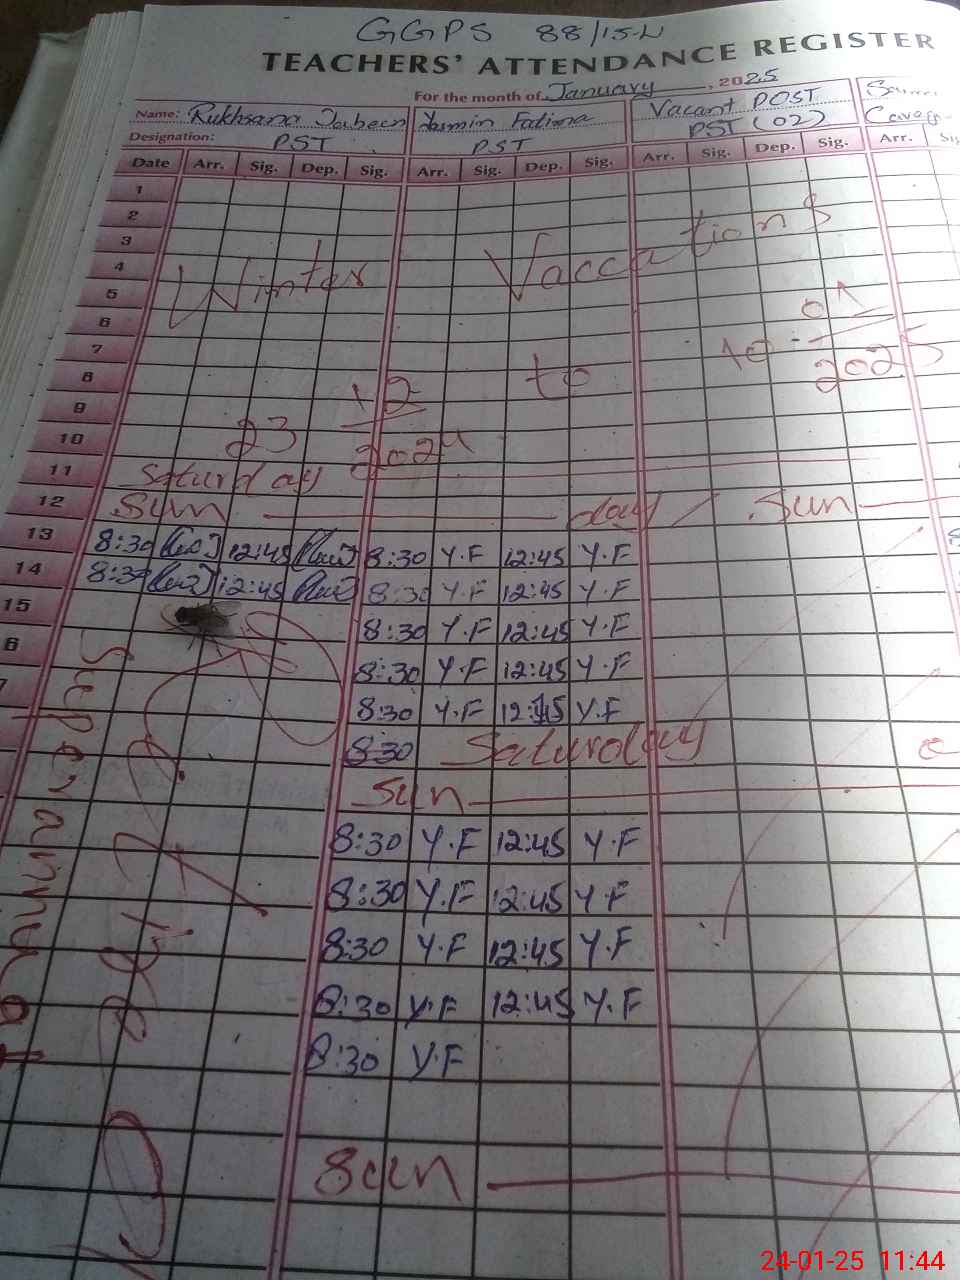 GGPS 88/15-L
TEACHERS' ATTENDANCE REGISTER
For the month of January, 2025
Name: Rukhsana Jabeen Yasmin Fatima Vacant POST
Designation: PST PST PST (02)
Date Arr. Sig. Dep. Sig. Arr. Sig. Dep. Sig. Arr. Sig. Dep. Sig. Arr.
1
2
3
4
Winter Vaccations
5
6
7
8
9
10
23 12/2024 to 10-01/2025
11 Saturday
12 Sun day / Sun
13 8:30 12:45 8:30 Y.F 12:45 Y.F
14 8:30 12:45 8:30 Y.F 12:45 Y.F
15 8:30 Y.F 12:45 Y.F
6 8:30 Y.F 12:45 Y.F
7 8:30 Y.F 12:45 Y.F
8:30 Saturday
Sun
8:30 Y.F 12:45 Y.F
8:30 Y.F 12:45 Y.F
8:30 Y.F 12:45 Y.F
8:30 Y.F 12:45 Y.F
8:30 Y.F
Sun
24-01-25 11:44